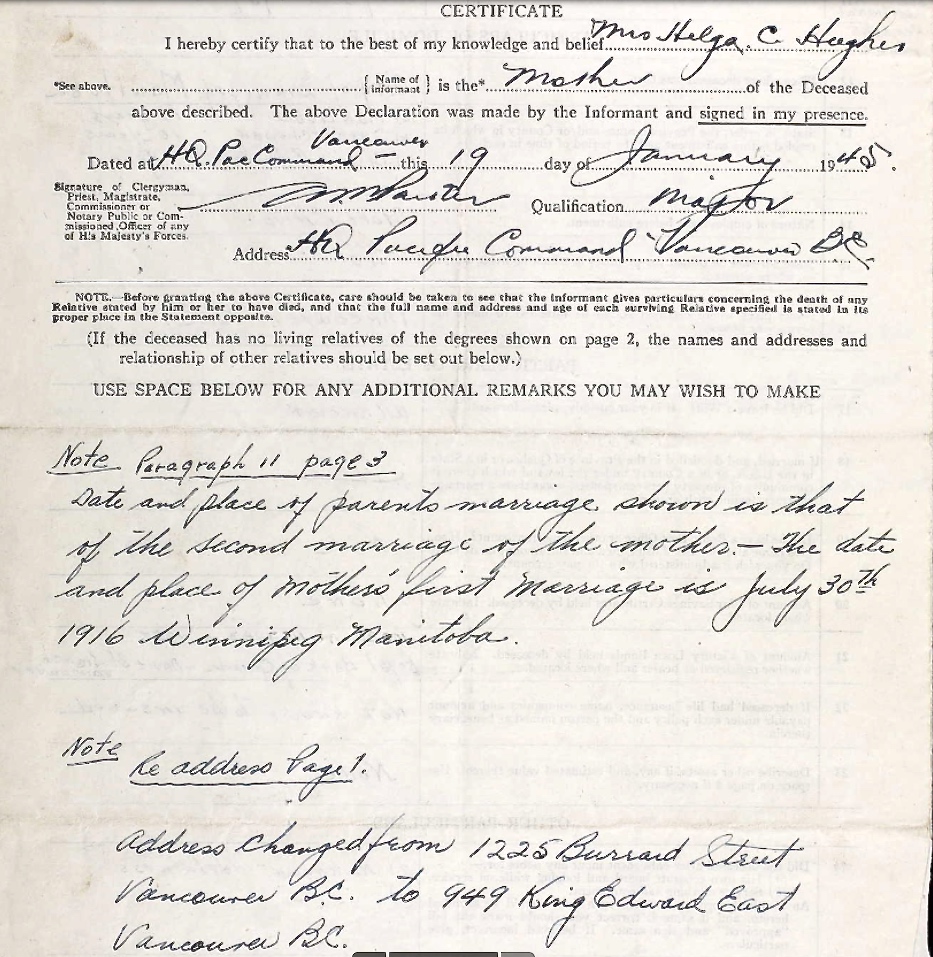 CERTIFICATE
I hereby certify that to the best of my knowledge and belief Mrs Helga. C. Hughes
*See above. { Name of Informant } is the* Mother of the Deceased
above described. The above Declaration was made by the Informant and signed in my presence.
Vancouver
Dated at HQ. Pac Command — this 19 day of January 1945.
Signature of Clergyman, Priest, Magistrate, Commissioner or Notary Public or Commissioned Officer of any of His Majesty's Forces.
Qualification Major
Address HQ Pacific Command Vancouver BC.
NOTE.—Before granting the above Certificate, care should be taken to see that the informant gives particulars concerning the death of any
Relative stated by him or her to have died, and that the full name and address and age of each surviving Relative specified is stated in its
proper place in the Statement opposite.
(If the deceased has no living relatives of the degrees shown on page 2, the names and addresses and
relationship of other relatives should be set out below.)
USE SPACE BELOW FOR ANY ADDITIONAL REMARKS YOU MAY WISH TO MAKE
Note Paragraph 11 page 3
Date and place of parents marriage shown is that
of the second marriage of the mother.— The date
and place of Mother's first Marriage is July 30th
1916 Winnipeg Manitoba.
Note
Re address Page 1.
Address changed from 1225 Burrard Street
Vancouver B.C. to 949 King Edward East
Vancouver B.C.